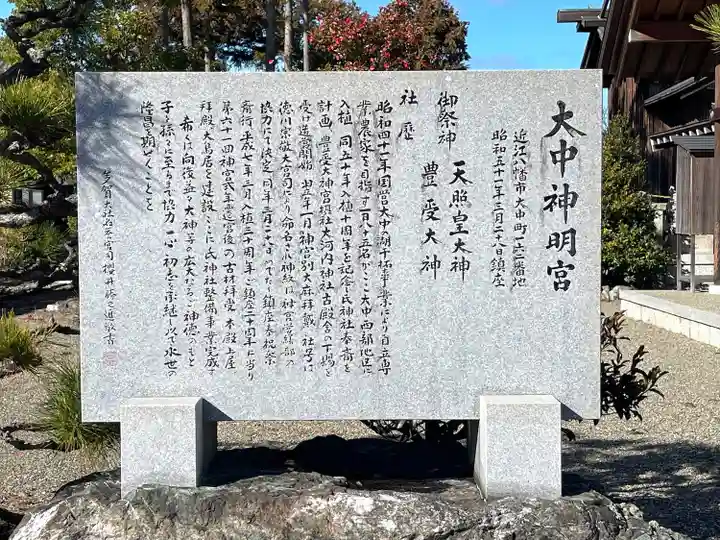 大中神明宮
近江八幡市大中町一六二番地
昭和五十一年十二月二十八日鎮座
御祭神 天照皇大神
豊受大神
社歴
昭和四十一年国営大中の湖干拓事業により自立専
業農家を目指す二百八十五名がここ大中西部地区に
入植 同五十年入植十周年を記念し氏神社奉斎を
計画 豊受大神宮摂社大河内神社古殿舎の下賜を
受け造営開始 翌年一月神宮別大麻拝戴 社号は
徳川宗敬大宮司により命名 御神紋は神宮営繕部の
協力にて決定 同年十二月二十八日めでたく鎮座奉祝祭
斎行 平成七年三月入植三十周年ご鎮座二十周年に当り
第六十一回神宮式年遷宮後の古材拝受 本殿上屋
拝殿 大鳥居を建設 ここに氏神社整備事業完成す
希くは向後益々大神等の広大なるご神徳のもと
子々孫々に至るまで協力一心 初志を承継し以て永世の
隆昌を期いくことを
多賀大社 宮司 櫻井勝之進 敬書